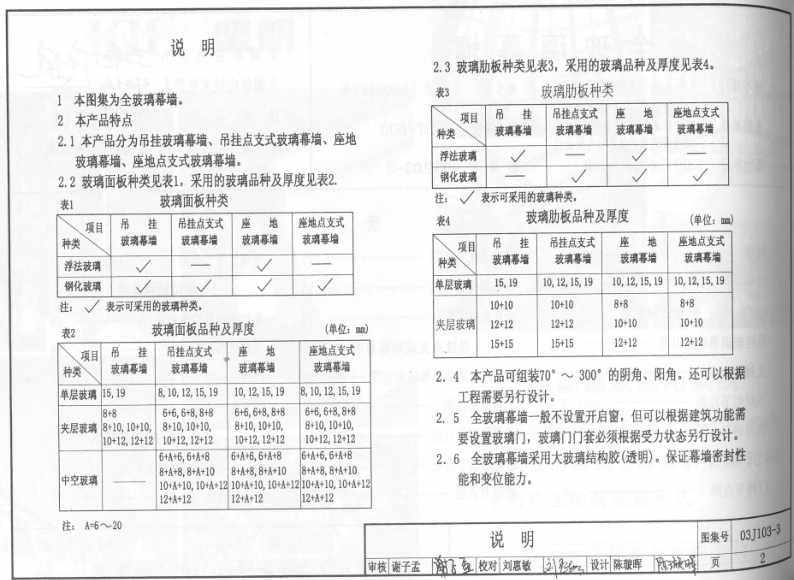 说 明
1 本图集为全玻璃幕墙。
2 本产品特点
2.1 本产品分为吊挂玻璃幕墙、吊挂点支式玻璃幕墙、座地
玻璃幕墙、座地点支式玻璃幕墙。
2.2 玻璃面板种类见表1，采用的玻璃品种及厚度见表2.
表1 玻璃面板种类
项目 吊 挂 吊挂点支式 座 地 座地点支式
种类 玻璃幕墙 玻璃幕墙 玻璃幕墙 玻璃幕墙
浮法玻璃 ✓ — ✓ —
钢化玻璃 ✓ ✓ ✓ ✓
注： ✓ 表示可采用的玻璃种类。
表2 玻璃面板品种及厚度 (单位: mm)
项目 吊 挂 吊挂点支式 座 地 座地点支式
种类 玻璃幕墙 玻璃幕墙 玻璃幕墙 玻璃幕墙
单层玻璃 15, 19 8, 10, 12, 15, 19 10, 12, 15, 19 8, 10, 12, 15, 19
8+8 6+6, 6+8, 8+8 6+6, 6+8, 8+8 6+6, 6+8, 8+8
夹层玻璃 8+10, 10+10, 8+10, 10+10, 8+10, 10+10, 8+10, 10+10,
10+12, 12+12 10+12, 12+12 10+12, 12+12 10+12, 12+12
6+A+6, 6+A+8 6+A+6, 6+A+8 6+A+6, 6+A+8
8+A+8, 8+A+10 8+A+8, 8+A+10 8+A+8, 8+A+10
中空玻璃 — 10+A+10, 10+A+12 10+A+10, 10+A+12 10+A+10, 10+A+12
12+A+12 12+A+12 12+A+12
注： A=6～20
2.3 玻璃肋板种类见表3，采用的玻璃品种及厚度见表4。
表3 玻璃肋板种类
项目 吊 挂 吊挂点支式 座 地 座地点支式
种类 玻璃幕墙 玻璃幕墙 玻璃幕墙 玻璃幕墙
浮法玻璃 ✓ — ✓ —
钢化玻璃 — ✓ ✓ ✓
注： ✓ 表示可采用的玻璃种类。
表4 玻璃肋板品种及厚度 (单位: mm)
项目 吊 挂 吊挂点支式 座 地 座地点支式
种类 玻璃幕墙 玻璃幕墙 玻璃幕墙 玻璃幕墙
单层玻璃 15, 19 10, 12, 15, 19 10, 12, 15, 19 10, 12, 15, 19
10+10 10+10 8+8 8+8
夹层玻璃 12+12 12+12 10+10 10+10
15+15 15+15 12+12 12+12
2. 4 本产品可组装70° ～ 300° 的阴角、阳角。还可以根据
工程需要另行设计。
2. 5 全玻璃幕墙一般不设置开启窗，但可以根据建筑功能需
要设置玻璃门，玻璃门门套必须根据受力状态另行设计。
2. 6 全玻璃幕墙采用大玻璃结构胶(透明)。保证幕墙密封性
能和变位能力。
说 明 图集号 03J103-3
审核 谢子孟 校对 刘惠敏 设计 陈骏晖 页 2